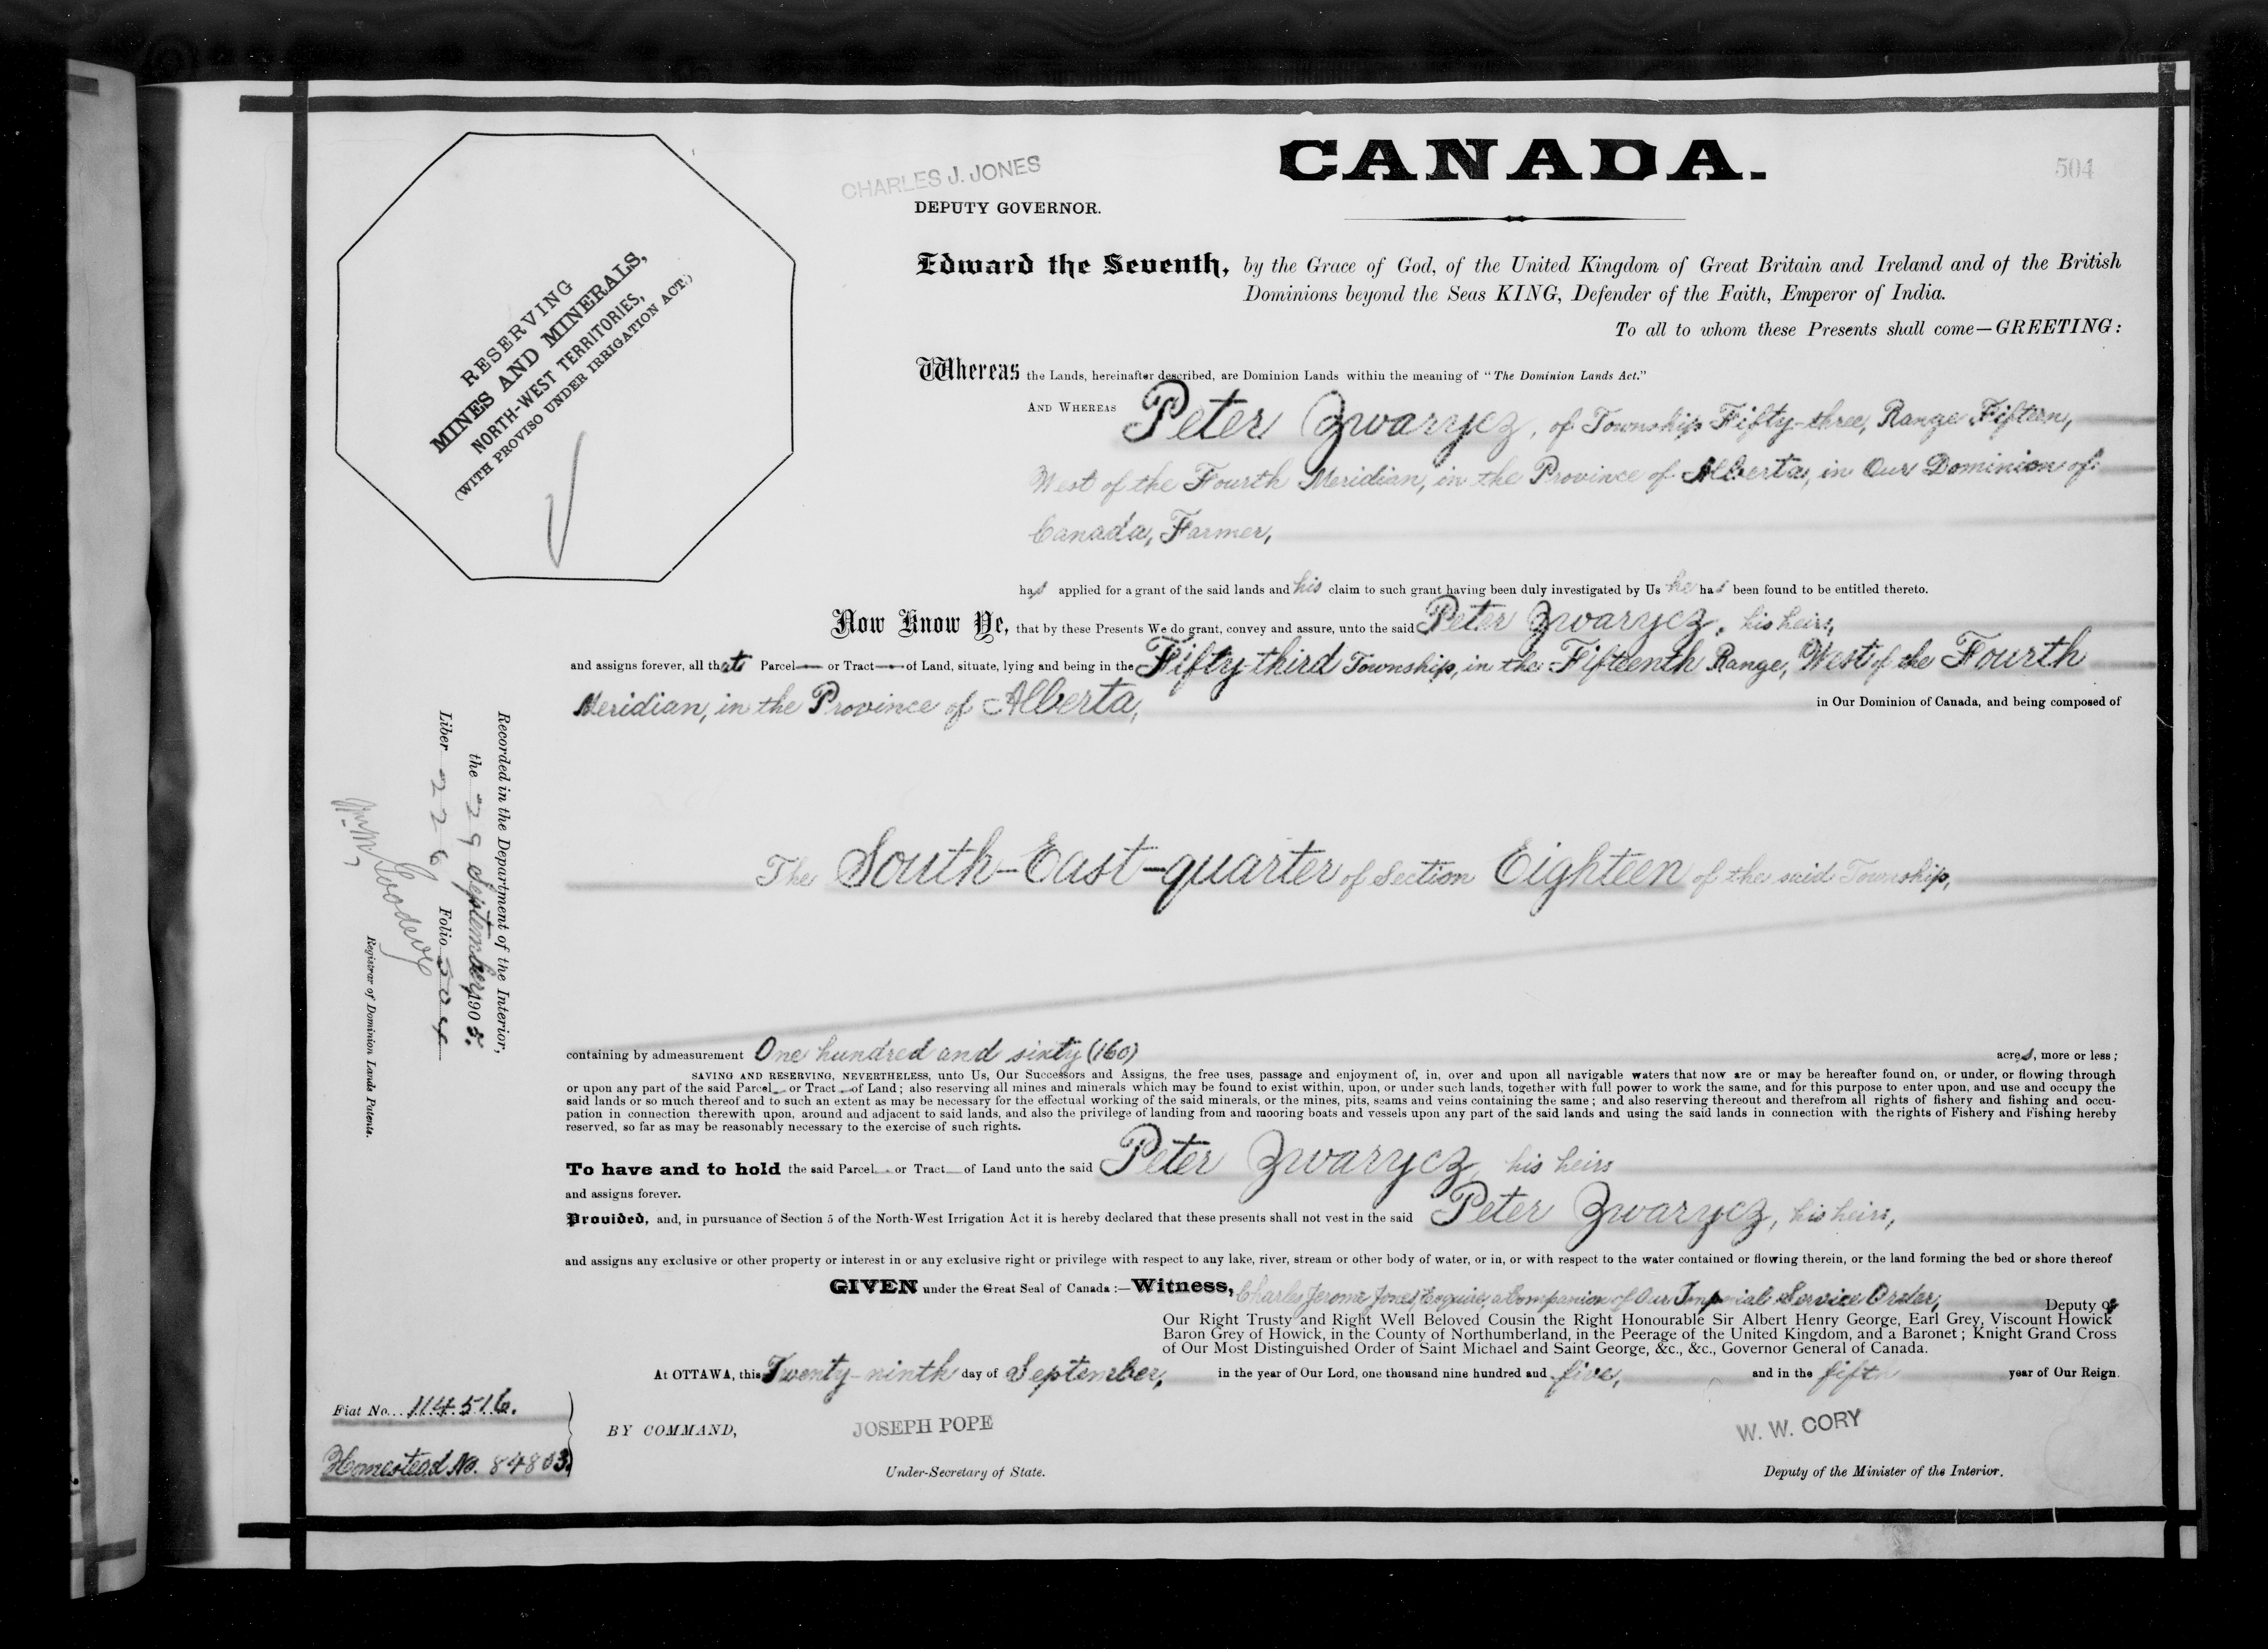 CANADA.
504
CHARLES J. JONES
DEPUTY GOVERNOR.
RESERVING
MINES AND MINERALS,
NORTH-WEST TERRITORIES,
(WITH PROVISO UNDER IRRIGATION ACT.)
Edward the Seventh, by the Grace of God, of the United Kingdom of Great Britain and Ireland and of the British
Dominions beyond the Seas KING, Defender of the Faith, Emperor of India.
To all to whom these Presents shall come—GREETING:
Whereas the Lands, hereinafter described, are Dominion Lands within the meaning of "The Dominion Lands Act."
AND WHEREAS Peter Zwarycz, of Township Fifty-three, Range Fifteen,
West of the Fourth Meridian, in the Province of Alberta, in Our Dominion of
Canada, Farmer,
has applied for a grant of the said lands and his claim to such grant having been duly investigated by Us he has been found to be entitled thereto.
Now Know Ye, that by these Presents We do grant, convey and assure, unto the said Peter Zwarycz, his heirs,
and assigns forever, all that Parcel or Tract of Land, situate, lying and being in the Fifty-third Township, in the Fifteenth Range, West of the Fourth
Meridian, in the Province of Alberta, in Our Dominion of Canada, and being composed of
The South-East-quarter of Section Eighteen of the said Township,
containing by admeasurement One hundred and sixty (160) acres, more or less;
SAVING AND RESERVING, NEVERTHELESS, unto Us, Our Successors and Assigns, the free uses, passage and enjoyment of, in, over and upon all navigable waters that now are or may be hereafter found on, or under, or flowing through
or upon any part of the said Parcel or Tract of Land; also reserving all mines and minerals which may be found to exist within, upon, or under such lands, together with full power to work the same, and for this purpose to enter upon, and use and occupy the
said lands or so much thereof and to such an extent as may be necessary for the effectual working of the said minerals, or the mines, pits, seams and veins containing the same; and also reserving thereout and therefrom all rights of fishery and fishing and occu-
pation in connection therewith upon, around and adjacent to said lands, and also the privilege of landing from and mooring boats and vessels upon any part of the said lands and using the said lands in connection with the rights of Fishery and Fishing hereby
reserved, so far as may be reasonably necessary to the exercise of such rights.
To have and to hold the said Parcel or Tract of Land unto the said Peter Zwarycz, his heirs
and assigns forever.
Provided, and, in pursuance of Section 5 of the North-West Irrigation Act it is hereby declared that these presents shall not vest in the said Peter Zwarycz, his heirs,
and assigns any exclusive or other property or interest in or any exclusive right or privilege with respect to any lake, river, stream or other body of water, or in, or with respect to the water contained or flowing therein, or the land forming the bed or shore thereof
GIVEN under the Great Seal of Canada:—Witness, Charles Jerome Jones, Esquire, a Companion of Our Imperial Service Order, Deputy of
Our Right Trusty and Right Well Beloved Cousin the Right Honourable Sir Albert Henry George, Earl Grey, Viscount Howick
Baron Grey of Howick, in the County of Northumberland, in the Peerage of the United Kingdom, and a Baronet; Knight Grand Cross
of Our Most Distinguished Order of Saint Michael and Saint George, &c., &c., Governor General of Canada.
At OTTAWA, this Twenty-ninth day of September, in the year of Our Lord, one thousand nine hundred and five, and in the fifth year of Our Reign.
BY COMMAND,
JOSEPH POPE
Under-Secretary of State.
W. W. CORY
Deputy of the Minister of the Interior.
Fiat No. 114516.
Homestead No. 84803.
Recorded in the Department of the Interior,
the 29 September, 1905.
Liber 226 Folio 504
Registrar of Dominion Lands Patents.